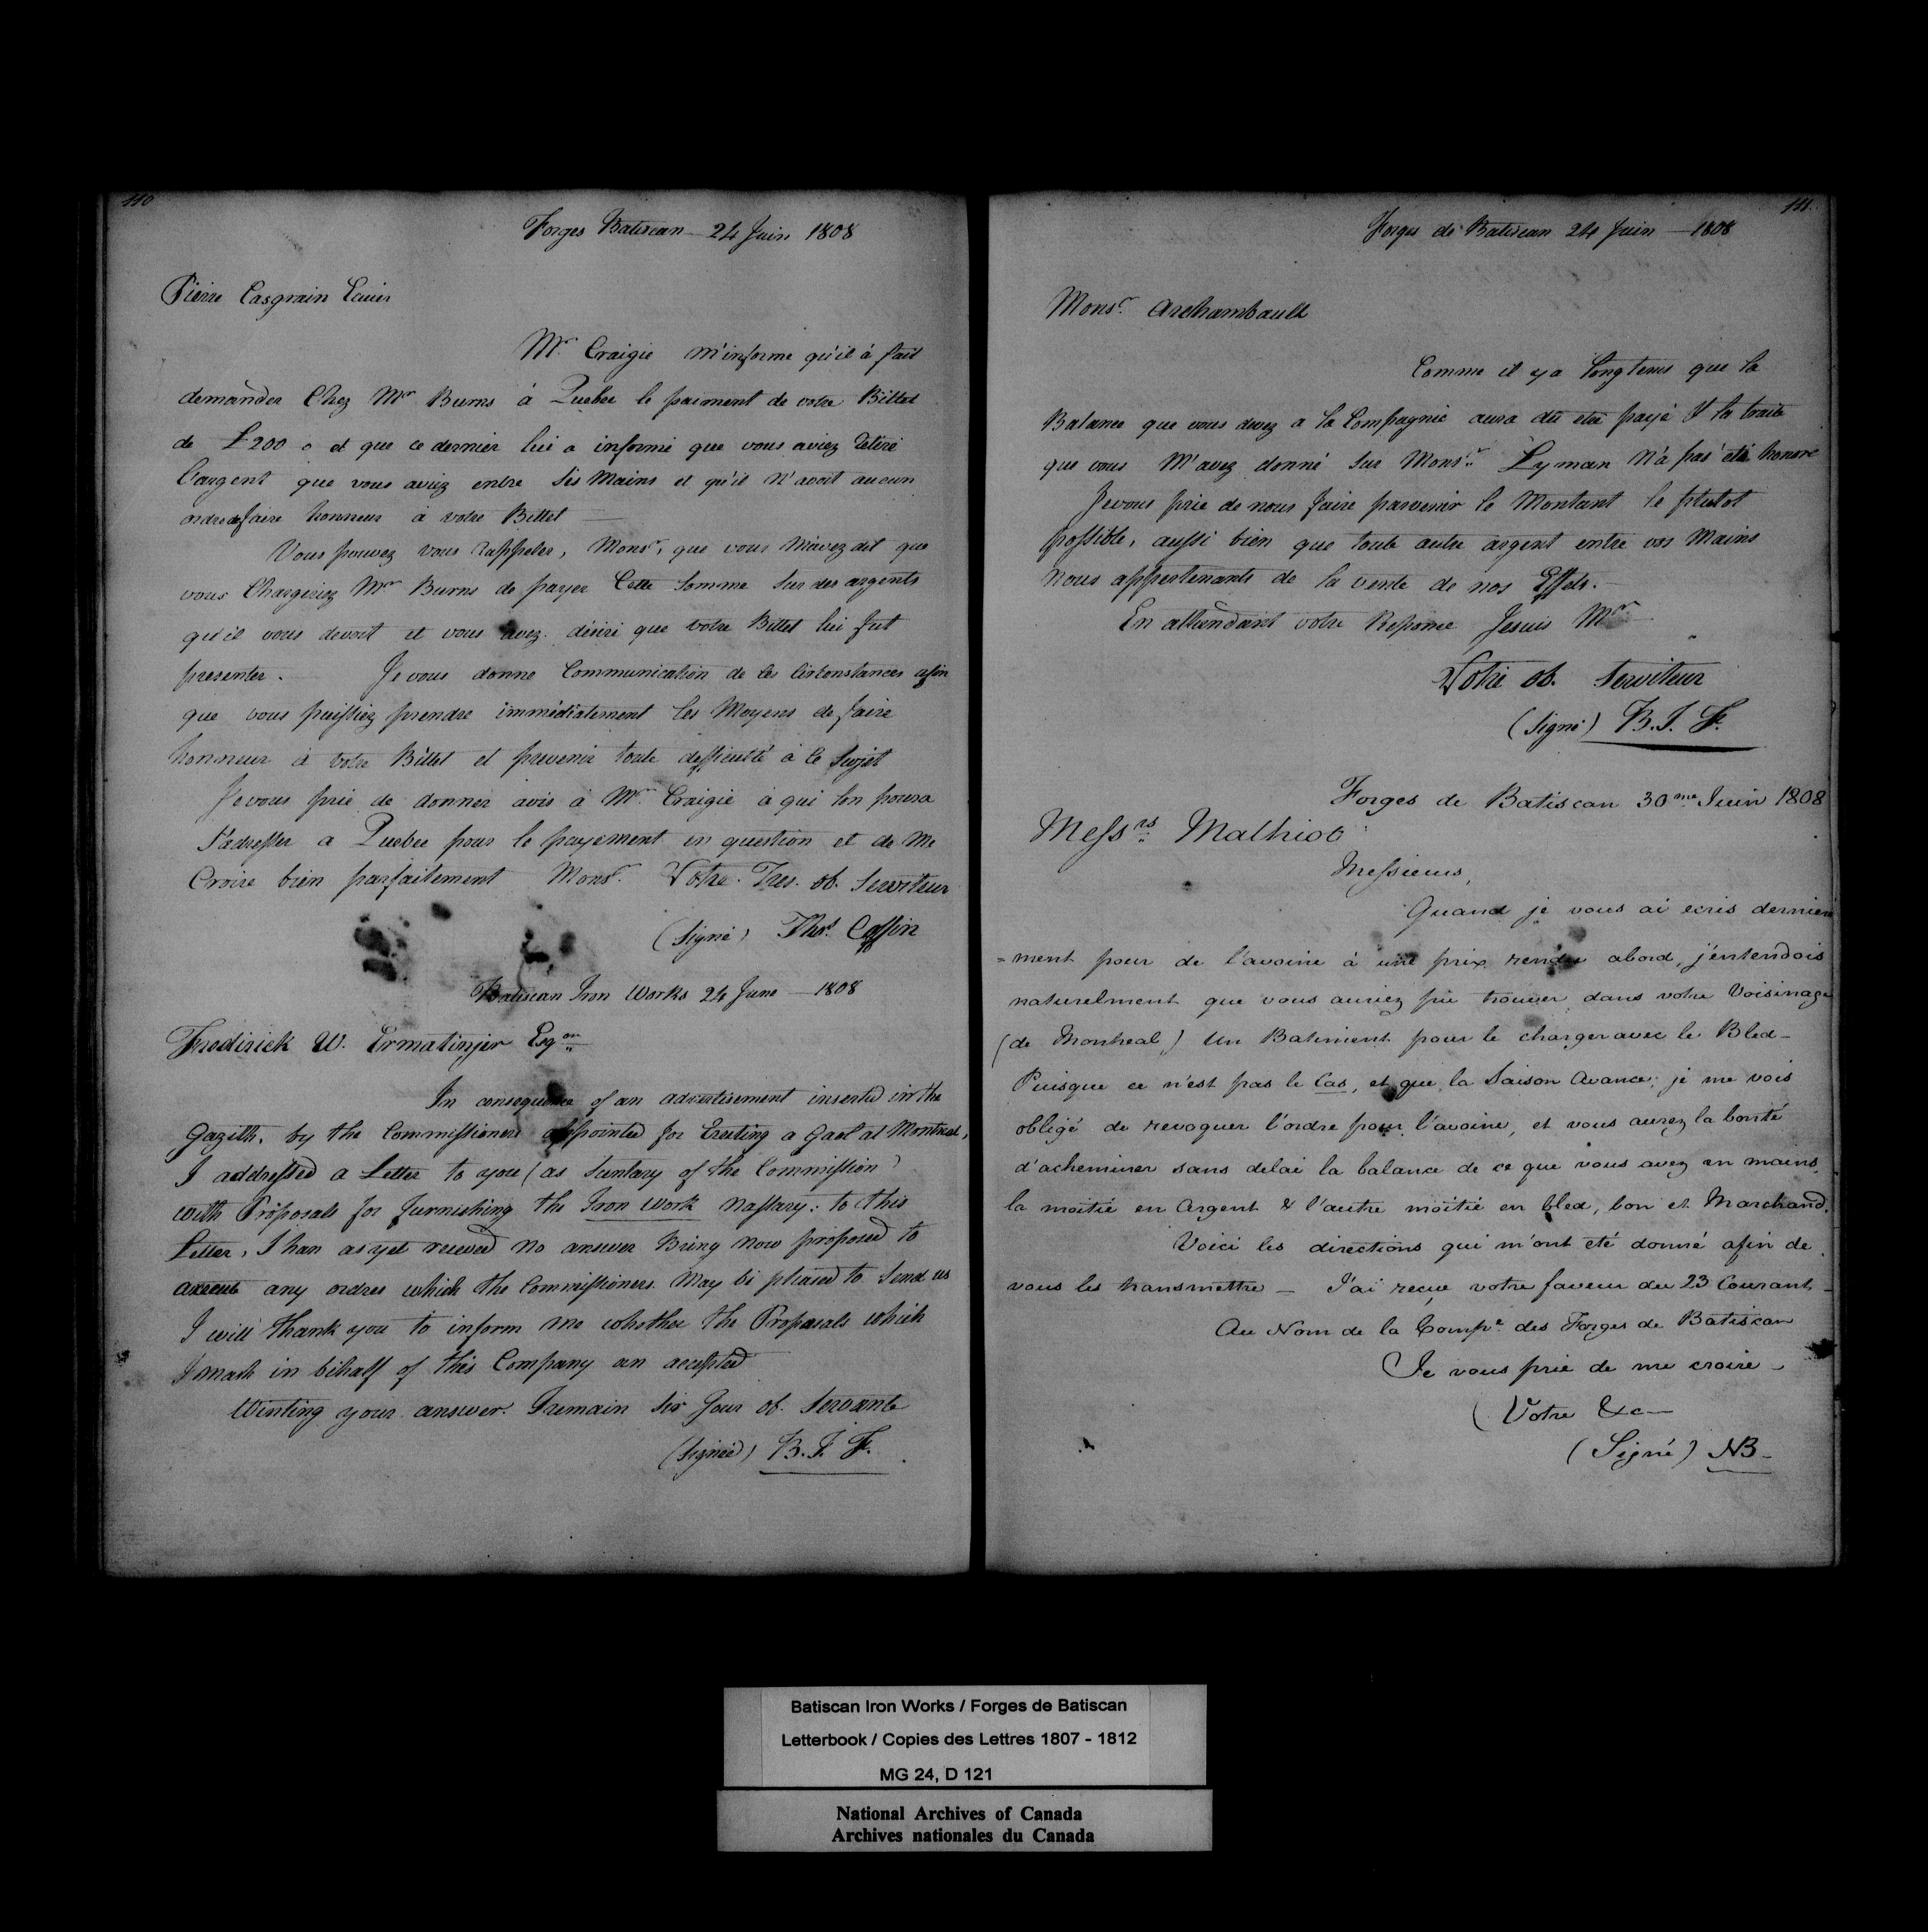 110
Forges Batiscan 24 Juin 1808
Pierre Casgrain Ecuier
Mr Craigie m'informe qu'il à fait
demander Chez Mr Burns à Quebec le paiment de votre Billet
de £200 o et que ce dernier lui a informé que vous aviez retiré
l'argent que vous aviez entre Ses Mains et qu'il N'avoit aucun
ordre de faire honneur à votre Billet —
Vous pouvez vous rappeler, Monsr, que vous M'avez dit que
vous Chargeriez Mr Burns de payer Cette Somme Sur des argents
qu'il vous devoit et vous avez désiré que votre Billet lui fut
presenter. Je vous donne Communication de Ces Circonstances afin
que vous puissiez prendre immédiatement les Moyens de faire
honneur à votre Billet et prevenir toute difficulté à ce Sujet
Je vous prie de donner avis à Mr Craigie à qui l'on poura
S'adresser a Quebec pour le payement en question et de Me
Croire bien parfaitement Monsr. Votre Tres. ob. Serviteur
(Signé) Thos. Coffin
Batiscan Iron Works 24 June — 1808
Fredirick W. Ermatinjer Esqr
In consequence of an advertisement inserted in the
Gazitte, by the Commissioners appointed for Erecting a Gaol at Montreal,
I addressed a Letter to you (as Suntary of the Commission)
with Proposals for furnishing the Iron Work Nassary: to this
Letter, I han as yet receved no answer Bring now proposed to
axecute any ordres which the Commissioners May bi pleased to Send us
I will thank you to inform me whether the Proposals which
I mash in bihalf of this Company an accepted
Winting your answer. I remain Sir Your ob. Servante
(Signeé) B. I. F.
111.
Forges de Batiscan 24 Juin — 1808
Monsr. Archambault
Comme il y a longtems que la
Balance que vous devez a la Compagnie aura dû etre payé & la traite
que vous M'avez donné Sur Monsr. Lyman N'a pas été honoré
Je vous prie de nous faire parvenir le Montant le plutot
possible, aussi bien que toute autre argent entre vos Mains
Nous appertenants de la vente de nos Effets. —
En attendant votre Reponce Je suis Mr
Votre ob. Serviteur
(Signé) B. I. F.
Forges de Batiscan 30me Juin 1808
Messrs Malhiot
Messieurs,
Quand je vous ai ecris derniere
=ment pour de l'avoine à une prix rendu abord, j'entendois
naturelment que vous auriez pu trouver dans votre Voisinage
(de Montreal) Un Batiment pour le charger avec le Bled —
Puisque ce n'est pas le Cas, et que la Saison Avance; je me vois
obligé de revoquer l'ordre pour l'avoine, et vous aurez la bonté
d'acheminer sans delai la balance de ce que vous avez en mains,
la moitié en Argent & l'autre moitié en bled, bon et Marchand.
Voici les directions qui m'ont eté donné afin de
vous les transmettre — J'ai reçue votre faveur du 23 Courant —
Au Nom de la Compe. des Forges de Batiscan
Je vous prie de me croire —
(Votre &c —
(Signé) NB —
Batiscan Iron Works / Forges de Batiscan
Letterbook / Copies des Lettres 1807 - 1812
MG 24, D 121
National Archives of Canada
Archives nationales du Canada